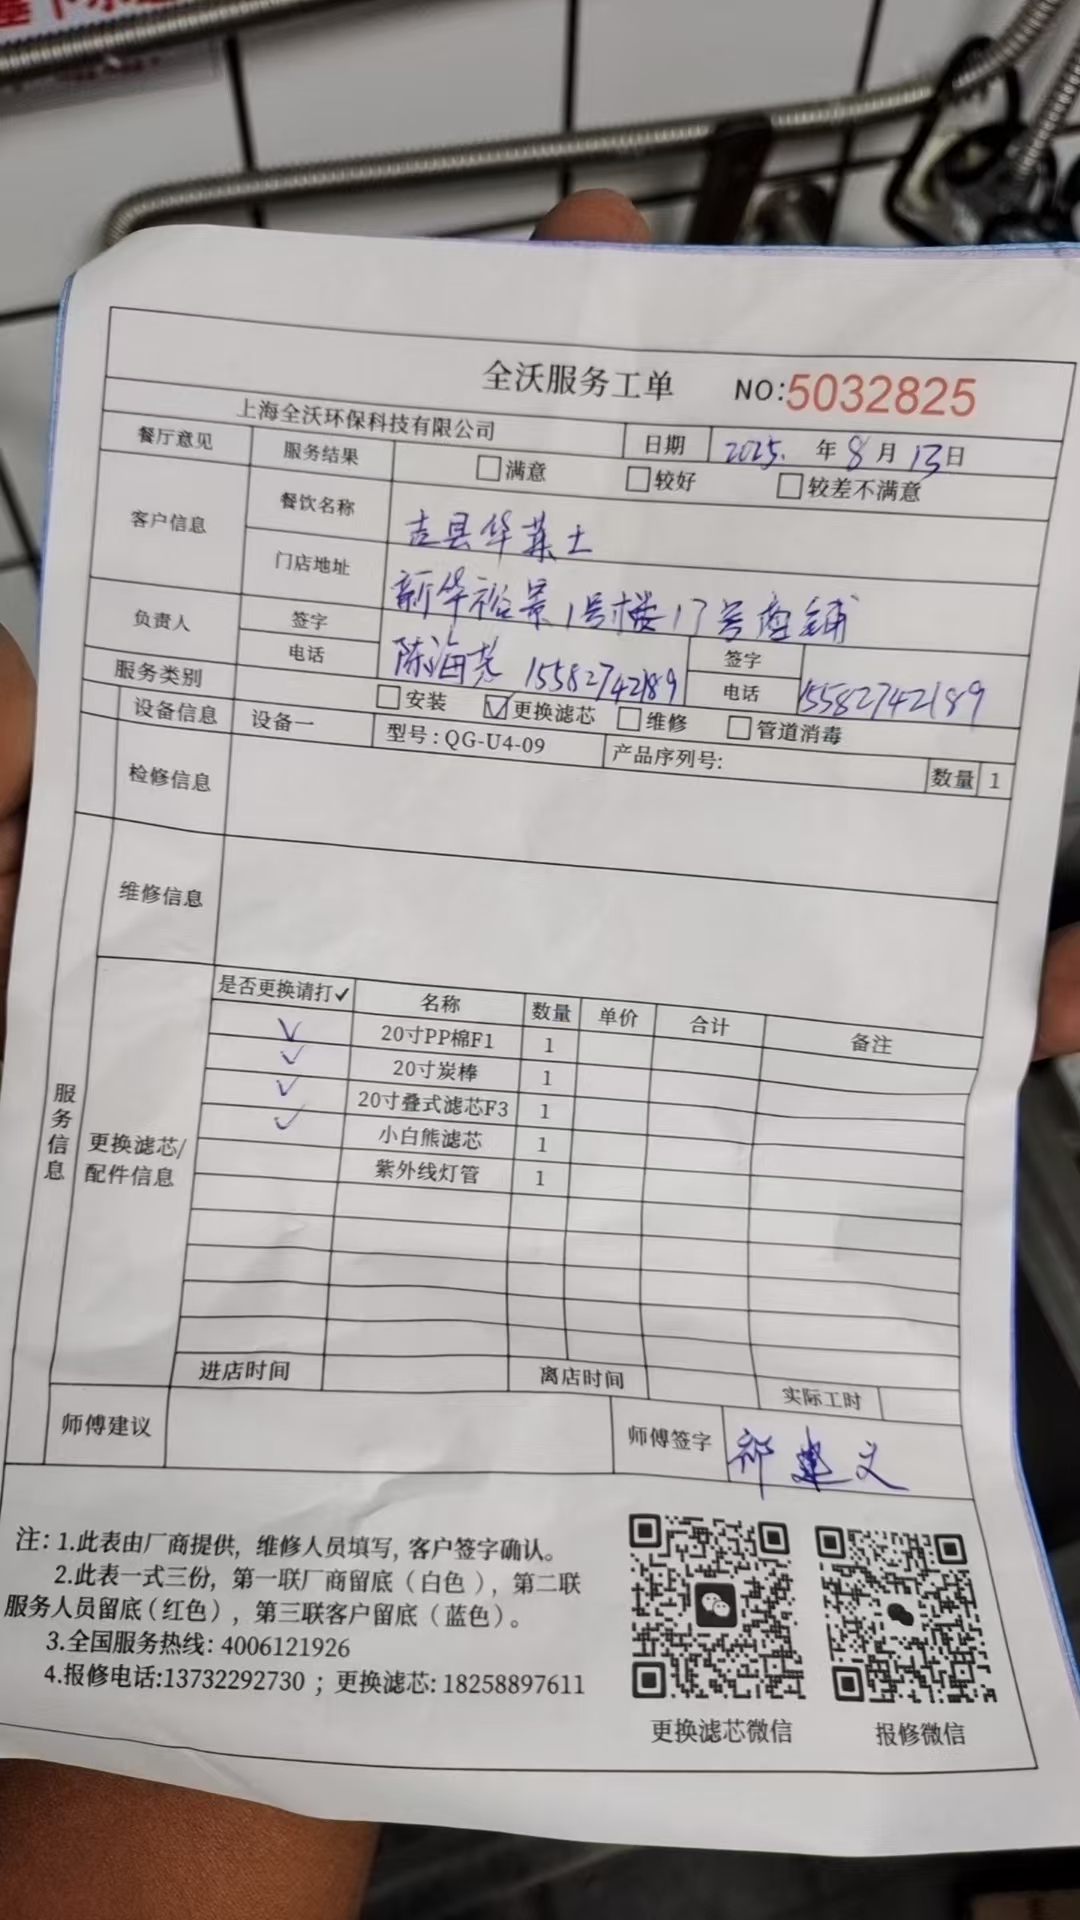 全沃服务工单 NO:5032825
上海全沃环保科技有限公司 日期 2025. 年 8 月 13 日
餐厅意见 服务结果 满意 较好 较差不满意
客户信息 餐饮名称 吉县华莱士
门店地址 新华裕景1号楼17号商铺
负责人 签字 陈海尧 签字
电话 15582742189 电话 15582742189
服务类别 安装 更换滤芯 维修 管道消毒
设备信息 设备一 型号:QG-U4-09 产品序列号: 数量 1
检修信息
维修信息
服务信息
更换滤芯/配件信息
是否更换请打✓ 名称 数量 单价 合计 备注
✓ 20寸PP棉F1 1
✓ 20寸炭棒 1
✓ 20寸叠式滤芯F3 1
✓ 小白熊滤芯 1
紫外线灯管 1
进店时间 离店时间 实际工时
师傅建议 师傅签字 祁建义
注: 1.此表由厂商提供, 维修人员填写, 客户签字确认。
2.此表一式三份, 第一联厂商留底(白色), 第二联
服务人员留底(红色), 第三联客户留底(蓝色)。
3.全国服务热线: 4006121926
4.报修电话:13732292730 ; 更换滤芯: 18258897611
更换滤芯微信 报修微信